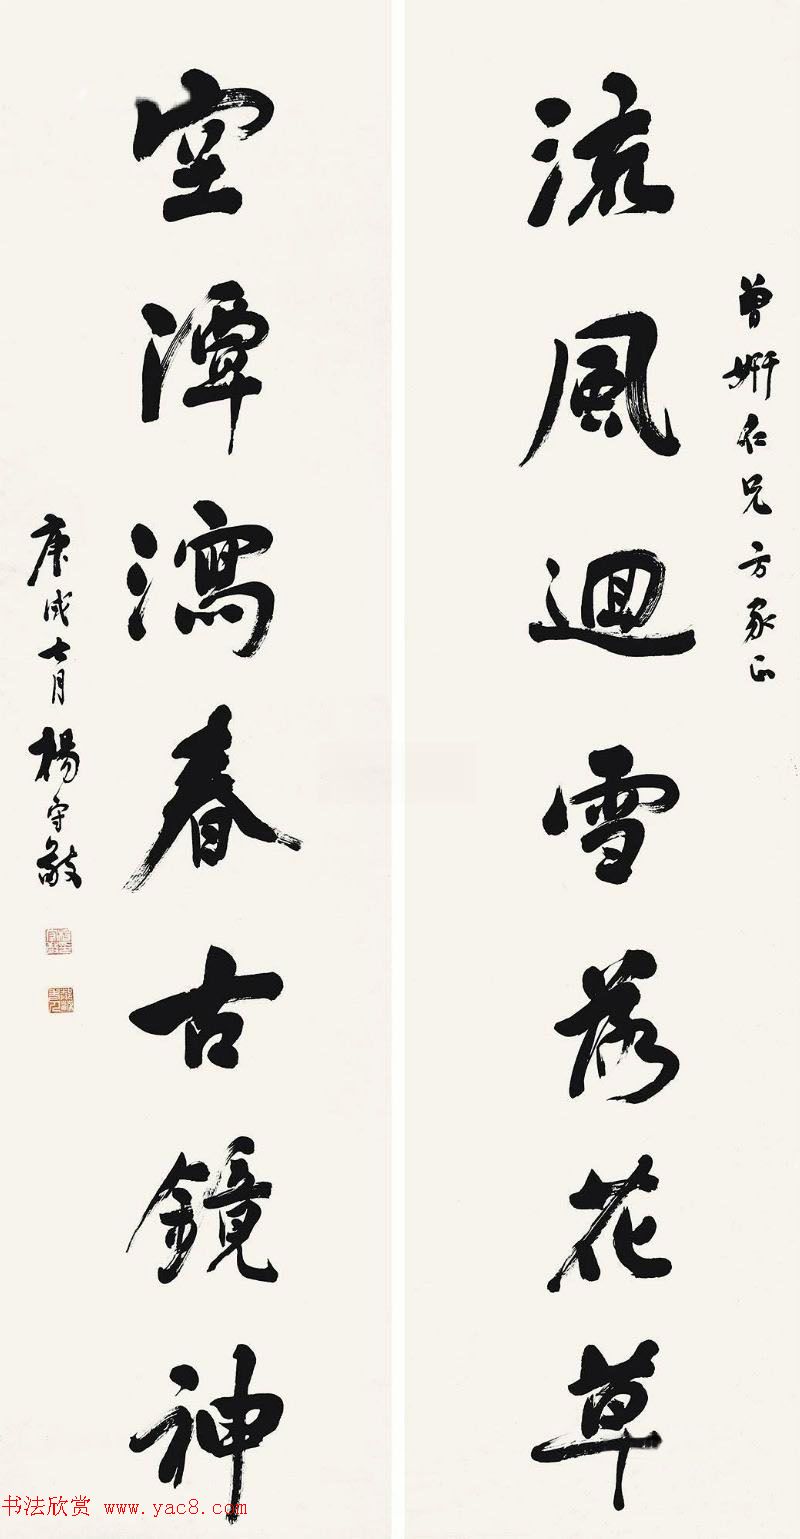 曾姸仁兄方家正
流風迴雪落花草
空潭瀉春古鏡神
庚戌七月楊守敬
书法欣赏 www.yac8.com